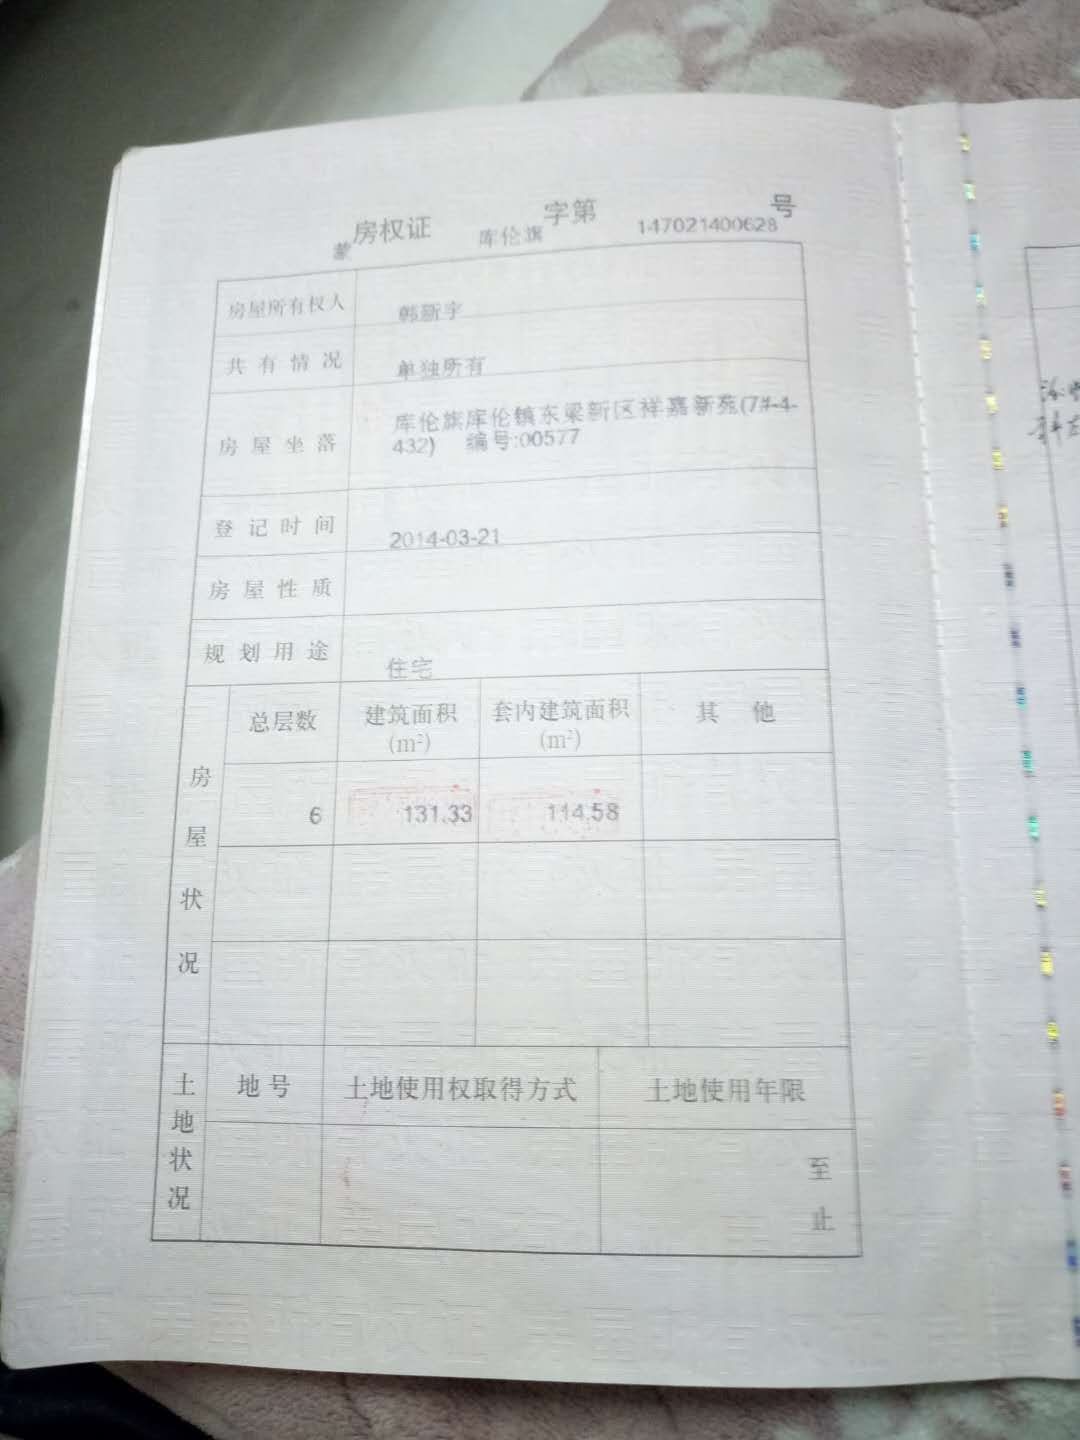 蒙 房权证 库伦旗 字第 147021400628 号
房屋所有权人 韩新宇
共有情况 单独所有
房屋坐落 库伦旗库伦镇东梁新区祥嘉新苑(7#-4-
432) 编号:00577
登记时间 2014-03-21
房屋性质
规划用途 住宅
房屋状况
总层数 建筑面积 (m²) 套内建筑面积 (m²) 其他
6 131.33 114.58
土地状况
地号 土地使用权取得方式 土地使用年限
至
止